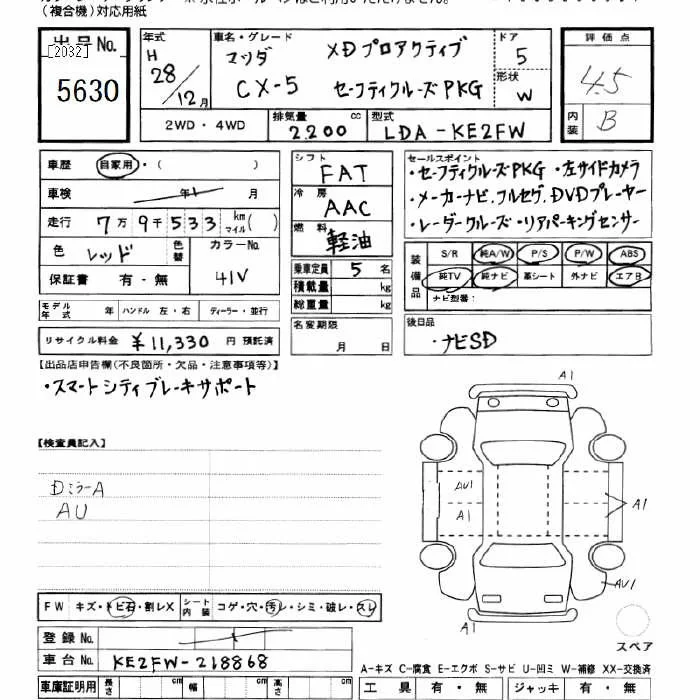 （複合機）対応用紙
出品No.
[2032]
5630
年式
H
28/12月
車名・グレード
マツダ XDプロアクティブ
CX-5 セーフティクルーズPKG
ドア
5
形状
W
2WD・4WD
排気量
2.200 cc
型式
LDA-KE2FW
評価点
4.5
内装
B
車歴 自家用・( )
車検 年 月
走行 7万9千533 km マイル( )
色 レッド 色替 カラーNo.
41V
保証書 有・無
モデル年式 年 ハンドル 左・右 ディーラー・並行
リサイクル料金 ¥11,330 円 預託済
シフト
FAT
冷房
AAC
燃料
軽油
乗車定員 5 名
積載量 kg
総重量 kg
名変期限
月 日
セールスポイント
・セーフティクルーズPKG ・左サイドカメラ
・メーカーナビ、フルセグ、DVDプレーヤー
・レーダークルーズ・リアパーキングセンサー
装備品
S/R 純A/W P/S P/W ABS
純TV 純ナビ 革シート 外ナビ エアB
ナビ型番:
後日品
・ナビSD
【出品店申告欄(不良箇所・欠品・注意事項等)】
・スマートシティブレーキサポート
【検査員記入】
DミラーA
AU
FW キズ・トビ石・割レX シート内装 コゲ・穴・汚レ・シミ・破レ・スレ
登録No.
車台No. KE2FW-218868
車庫証明用 長さ cm 幅 cm 高さ cm
A1
AU1
A1
A1
AU1
A1
スペア
A-キズ C-腐食 E-エクボ S-サビ U-凹ミ W-補修 XX-交換済
工具 有・無 ジャッキ 有・無